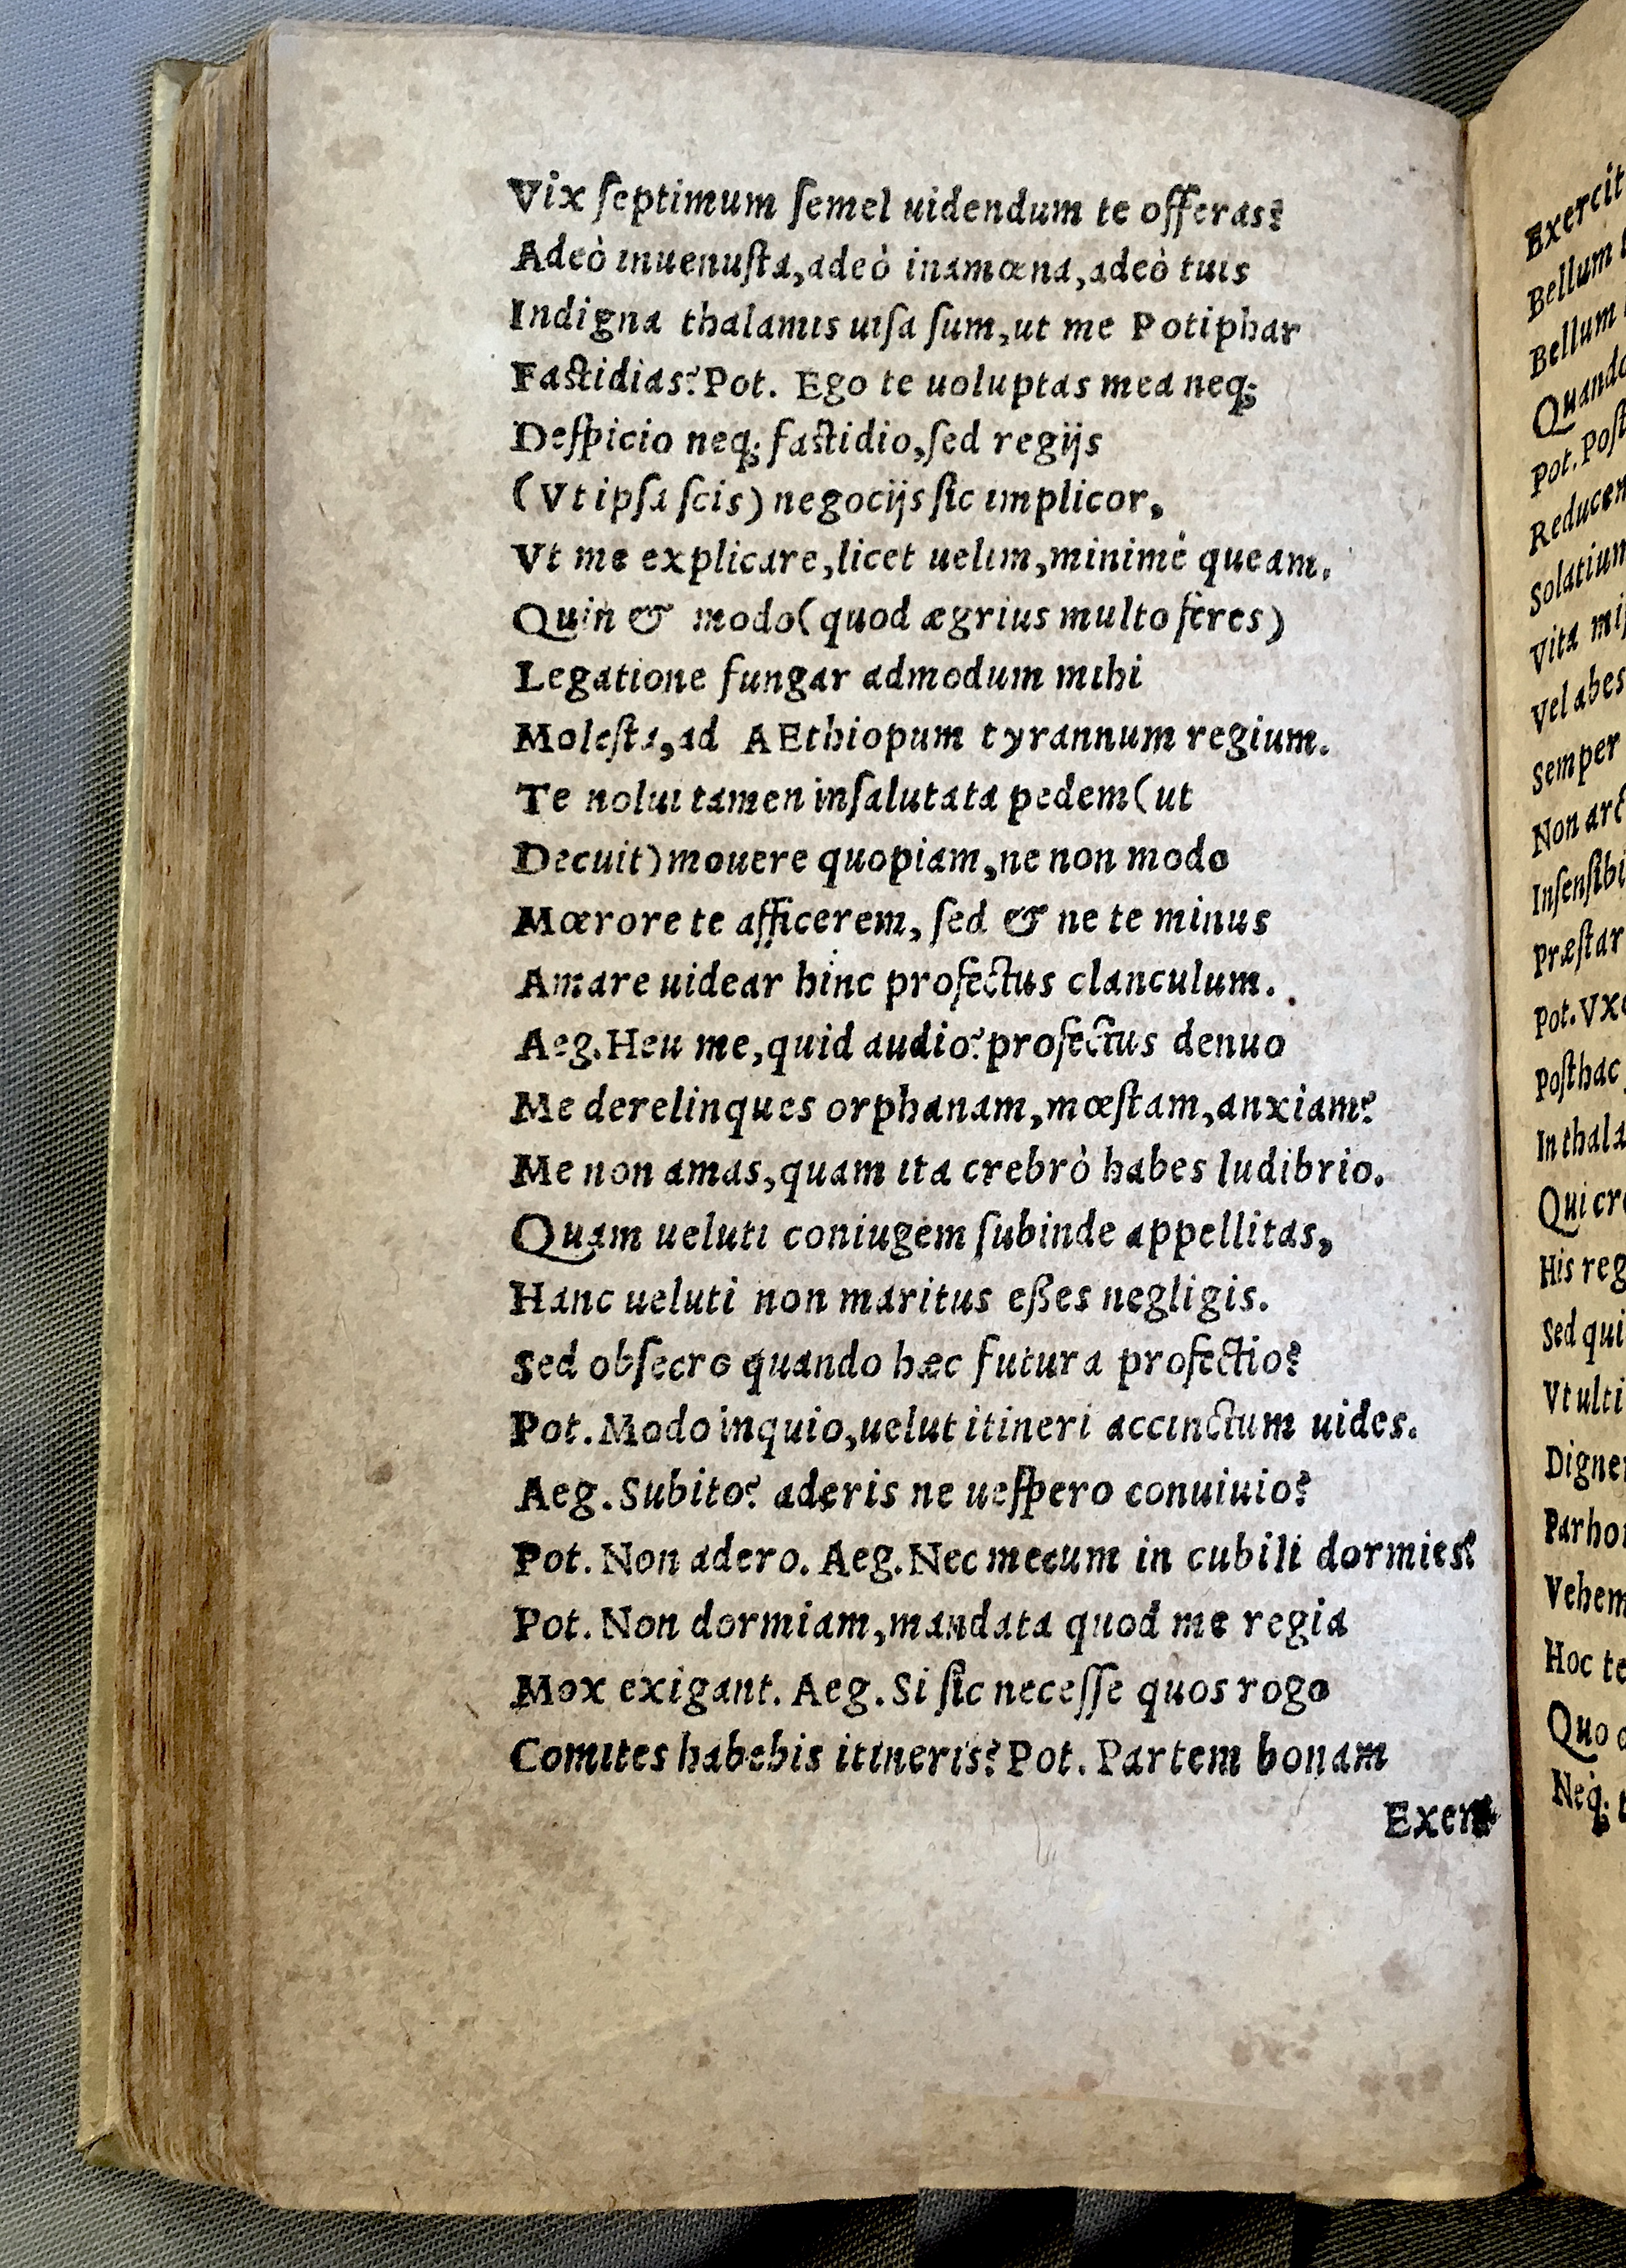 Vix ſeptimum ſemel uidendum te offeras?
Adeò inuenuſta, adeò inamœna, adeò tuis
Indigna thalamis uiſa ſum, ut me Potiphar
Faſtidias? Pot. Ego te uoluptas mea neq;
Deſpicio neq; faſtidio, ſed regijs
(Vt ipſa ſcis) negocijs ſic implicor,
Vt me explicare, licet uelim, minimè queam.
Quin & modo (quod ægrius multo feres)
Legatione fungar admodum mihi
Moleſta, ad AEthiopum tyrannum regium.
Te nolui tamen inſalutata pedem (ut
Decuit) mouere quopiam, ne non modo
Mœrore te afficerem, ſed & ne te minus
Amare uidear hinc profectus clanculum.
Aeg. Heu me, quid audio? profectus denuo
Me derelinques orphanam, mœſtam, anxiam?
Me non amas, quam ita crebrò habes ludibrio.
Quam ueluti coniugem ſubinde appellitas,
Hanc ueluti non maritus eßes negligis.
Sed obſecro quando hæc futura profectio?
Pot. Modo inquio, uelut itineri accinctum uides.
Aeg. Subito? aderis ne ueſpero conuiuio?
Pot. Non adero. Aeg. Nec mecum in cubili dormies?
Pot. Non dormiam, mandata quod me regia
Mox exigant. Aeg. Si ſic neceſſe quos rogo
Comites habebis itineris? Pot. Partem bonam
Exercit
Bellum
Bellum
Quando
Pot. Poſt
Reducen
Solatium
Vita miſ
Vel abes
Semper
Non arc
Inſenſibi
Præſtar
Pot. Vxo
Poſthac
In thala
Qui cre
His reg
Sed qui
Vt ulti
Digner
Par hon
Vehem
Hoc te
Quo
Neq;